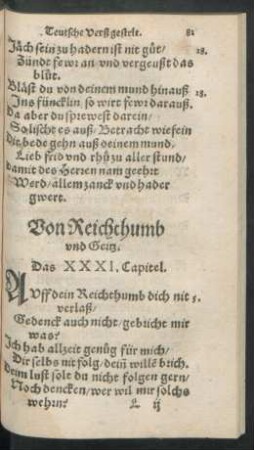 Teutsche Verß gestelt. 81
Jäch sein zu hadern ist nit gůt/ 28.
Zünde fewr an vnd vergeußt das
blůt.
Bläst du von deinem mund hinauß 28.
Ins füncklin/ so wirt fewr darauß.
Da aber du sprewest darein/
So lischt es auß/ Betracht wie fein
Die bede gehn auß deinem mund.
Lieb frid vnd rhů zu aller stund/
damit des Herren nam geehrt
Werd/ allem zanck vnd hader
gwert.
Von Reichthumb
vnd Geitz.
Das XXXI. Capitel.
AVff dein Reichthumb dich nit 5.
verlaß/
Gedenck auch nicht/ gebricht mir
was?
Ich hab allzeit genůg für mich/
Dir selbs nit folg/ deim̃ willẽ brich.
Deim lust solt du nicht folgen gern/
Noch dencken/ wer wil mir solchs
wehrn?
L ij